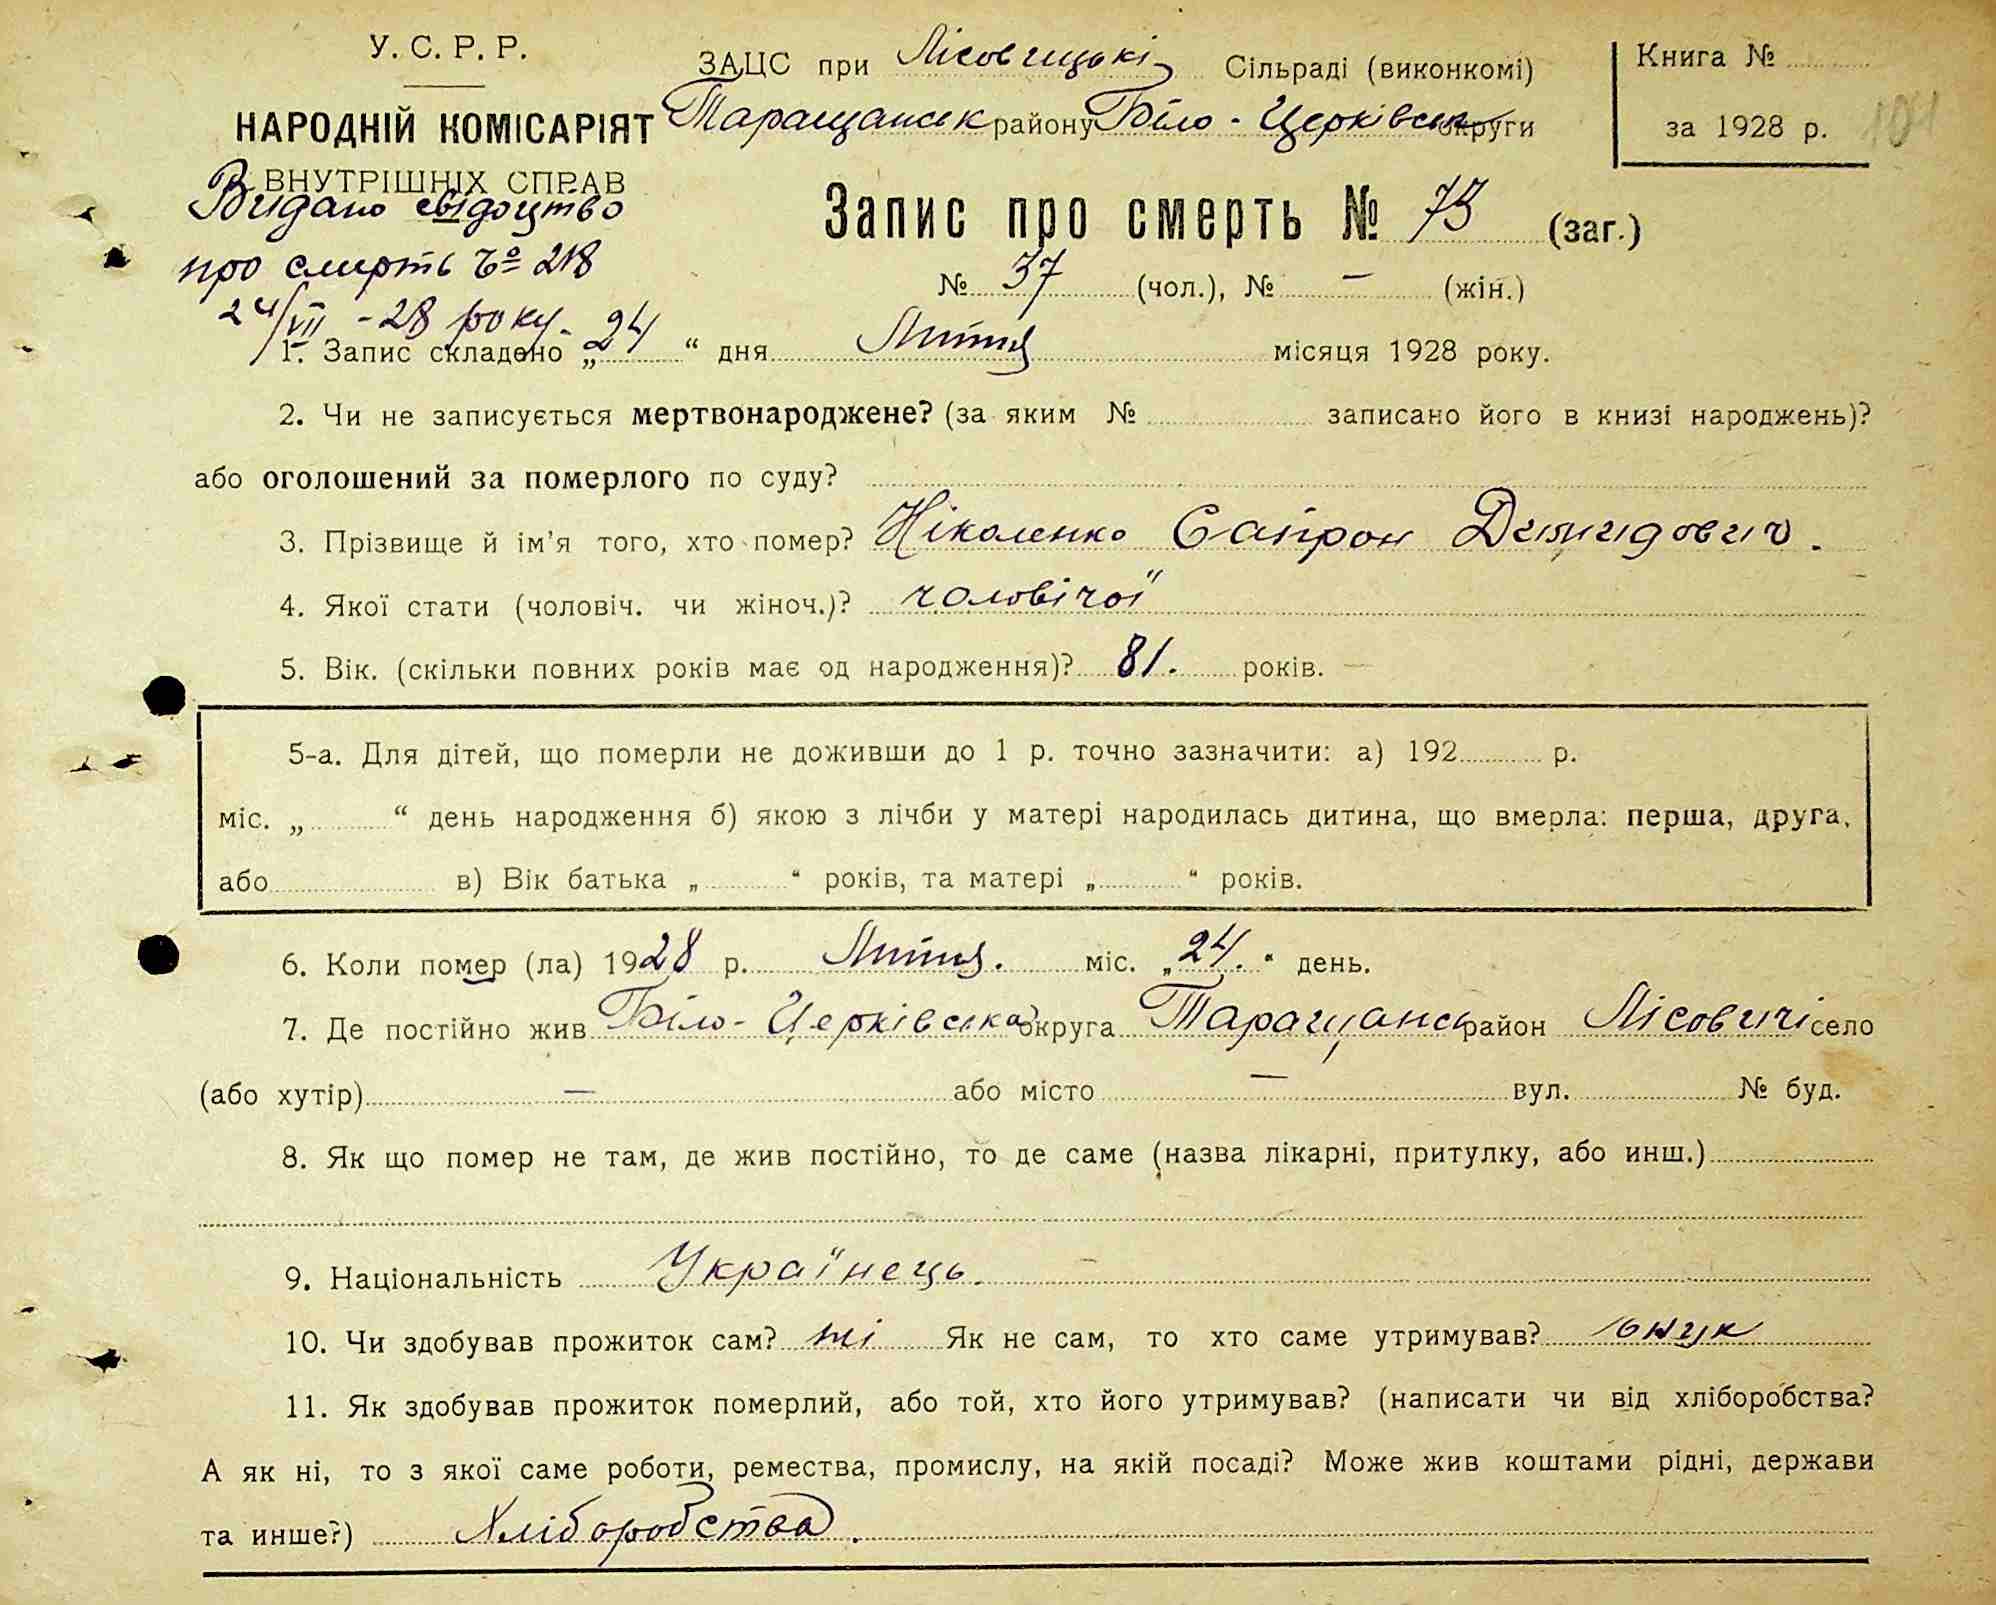 У. С. Р. Р.
НАРОДНІЙ КОМІСАРІЯТ
ВНУТРІШНІХ СПРАВ
Видано свідоцтво
про смерть № 218
24/VII - 28 року.
ЗАЦС при Лісовицькі Сільраді (виконкомі)
Таращанськ району Біло-Церківськ округи
Книга №
за 1928 р.
Запис про смерть № 73 (заг.)
№ 37 (чол.), № — (жін.)
1. Запис складено „24“ дня Липня місяця 1928 року.
2. Чи не записується мертвонароджене? (за яким № записано його в книзі народжень)?
або оголошений за померлого по суду?
3. Прізвище й ім’я того, хто помер? Ніколенко Сапрон Демидович.
4. Якої стати (чоловіч. чи жіноч.)? чоловічої
5. Вік. (скільки повних років має од народження)? 81. років.
5-а. Для дітей, що померли не доживши до 1 р. точно зазначити: а) 192 р.
міс. „ “ день народження б) якою з лічби у матері народилась дитина, що вмерла: перша, друга,
або в) Вік батька „ “ років, та матері „ “ років.
6. Коли помер (ла) 1928 р. Липня. міс. „24.“ день.
7. Де постійно жив Біло-Церківська округа Таращансь район Лісовичі село
(або хутір) — або місто — вул. № буд.
8. Як що помер не там, де жив постійно, то де саме (назва лікарні, притулку, або инш.)
9. Національність Українець.
10. Чи здобував прожиток сам? ні Як не сам, то хто саме утримував? онук
11. Як здобував прожиток померлий, або той, хто його утримував? (написати чи від хліборобства?
А як ні, то з якої саме роботи, ремества, промислу, на якій посаді? Може жив коштами рідні, держави
та инше?) Хліборобства.